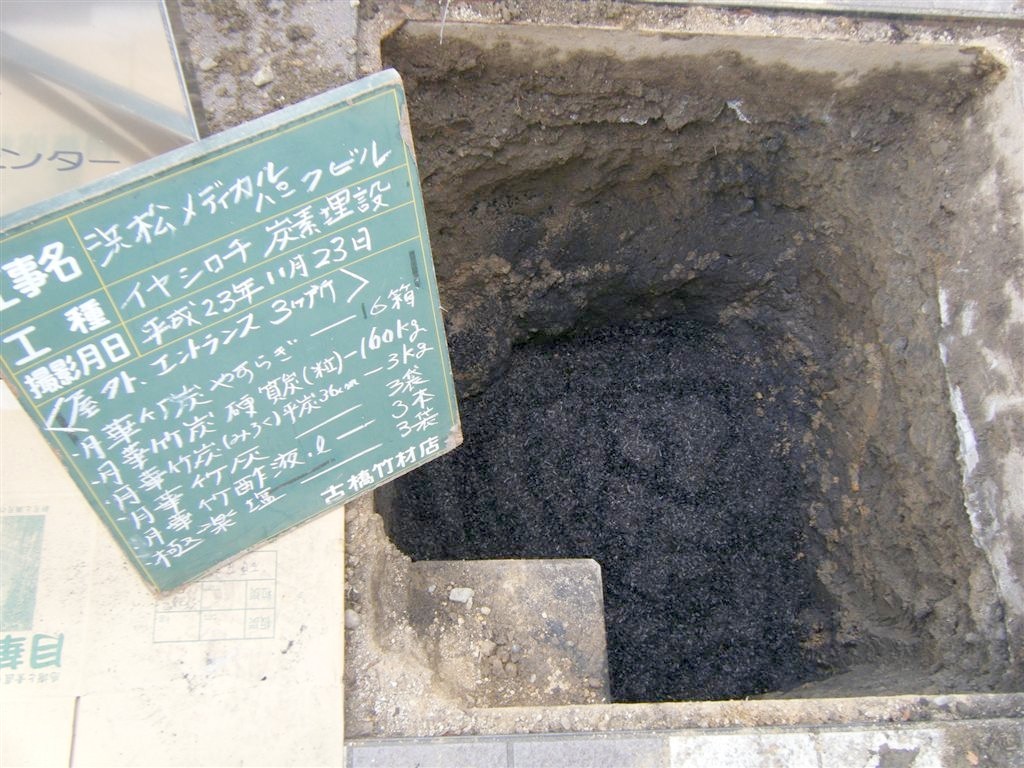 ンター
工事名 浜松メディカルパークビル
工種 イヤシロチ 炭素埋設
撮影月日 平成23年11月23日
〈屋外、エントランス 3ヶ所〉
・月華竹炭 やすらぎ — 6箱
・月華竹炭 硬質炭(粒) — 160kg
・月華竹炭(みろく)平炭36mm — 3kg
・月華竹灰 — 3袋
・月華竹酢液・l — 3本
・極楽塩 — 3袋
古橋竹材店
月華